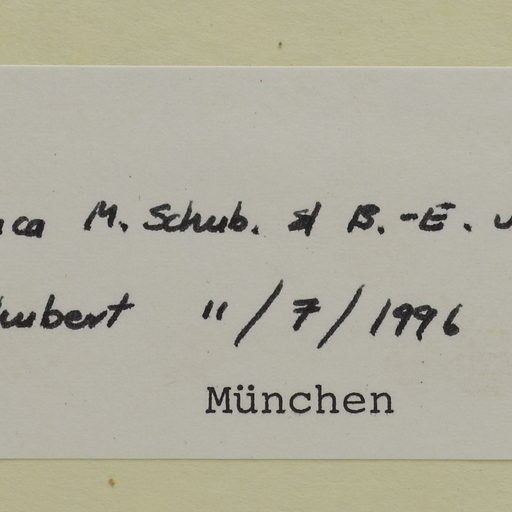 M. Schub. & B.-E. v
hubert 11/7/1996
München